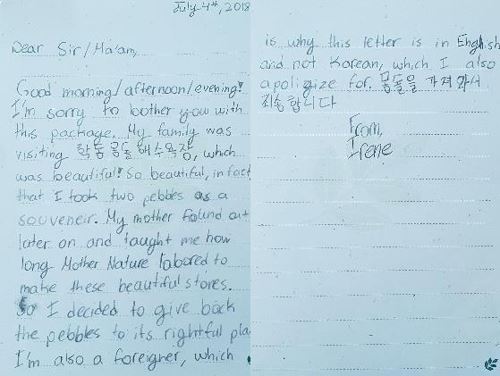 July 4th, 2018
Dear Sir/Ma'am,
Good morning/afternoon/evening!
I'm sorry to bother you with
this package. My family was
visiting 학동몽돌해수욕장, which
was beautiful! So beautiful, in fact
that I took two pebbles as a
souveneir. My mother found out
later on and taught me how
long Mother Nature labored to
make these beautiful stones.
So I decided to give back
the pebbles to its rightful pla
I'm also a foreigner, which
is why this letter is in English
and not Korean, which I also
apoligize for. 몽돌을 가져가서
죄송합니다
From,
Irene